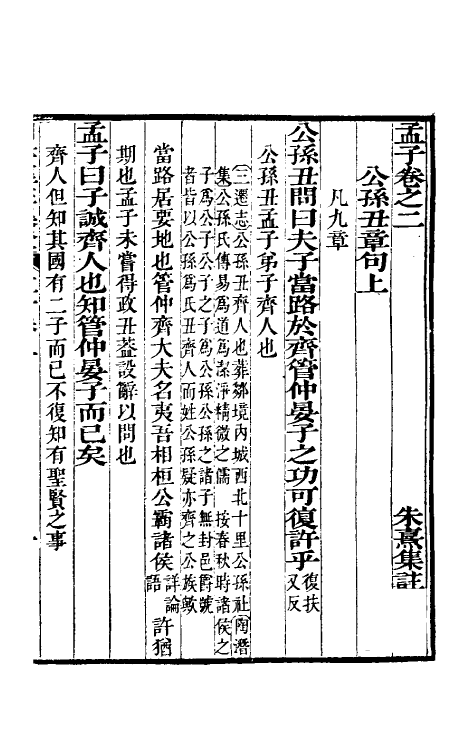 孟子卷之二
朱熹集註
公孫丑章句上
凡九章
公孫丑問曰夫子當路於齊管仲晏子之功可復許乎復扶又反
公孫丑孟子弟子齊人也
三遷志公孫丑齊人也葬鄒境内城西北十里公孫社陶潛
集公孫氏傳易爲道爲潔淨精微之儒 按春秋時諸侯之
子爲公子公子之子爲公孫公孫之諸子無封邑爵號
者皆以公孫爲氏丑齊人而姓公孫疑亦齊之公族歟
當路居要地也管仲齊大夫名夷吾相桓公霸諸侯詳論語許猶
期也孟子未嘗得政丑葢設辭以問也
孟子曰子誠齊人也知管仲晏子而已矣
齊人但知其國有二子而已不復知有聖賢之事